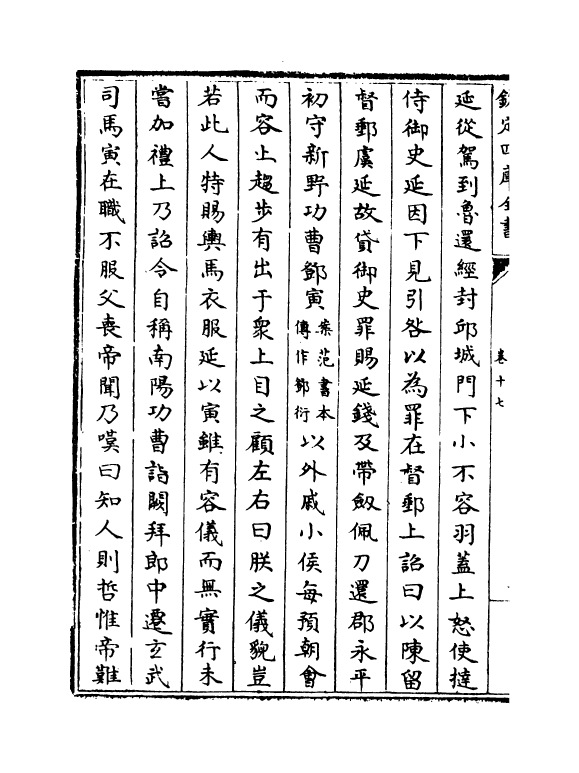 欽定四庫全書
卷十七
延從駕到魯還經封邱城門下小不容羽蓋上怒使撻
侍御史延因下見引咎以為罪在督郵上詔曰以陳留
督郵虞延故貸御史罪賜延錢及帶劔佩刀還郡永平
初守新野功曹鄧寅案范書本傳作鄧衍以外戚小侯每預朝會
而容止趨步有出于衆上目之顧左右曰朕之儀貌豈
若此人特賜輿馬衣服延以寅雖有容儀而無實行未
嘗加禮上乃詔令自稱南陽功曹詣闕拜郎中遷玄武
司馬寅在職不服父喪帝聞乃嘆曰知人則哲惟帝難